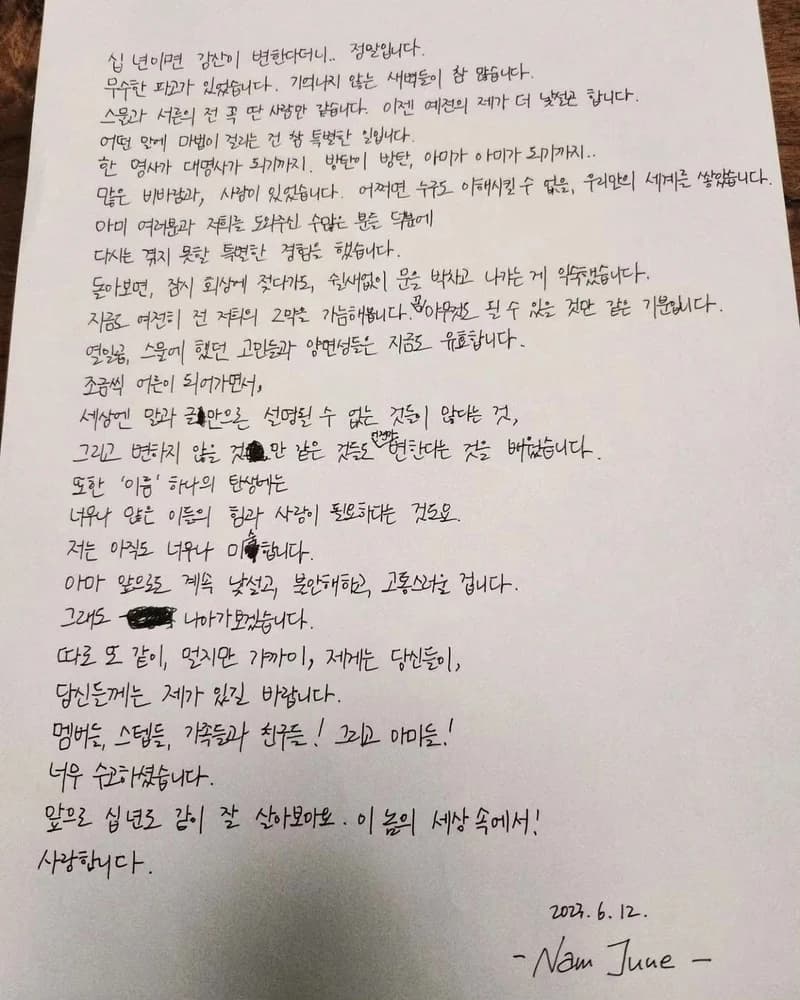 십 년이면 강산이 변한다더니.. 정말입니다.
무수한 파고가 있었습니다. 기억나지 않는 새벽들이 참 많습니다.
스물과 서른의 전 꼭 딴 사람만 같습니다. 이젠 예전의 제가 더 낯설곤 합니다.
어떤 안에 마법이 걸리는 건 참 특별한 일입니다.
한 명사가 대명사가 되기까지. 방탄이 방탄, 아미가 아미가 되기까지..
많은 비바람과, 사랑이 있었습니다. 어쩌면 누구도 이해시킬 수 없을, 우리만의 세계를 쌓았습니다.
아미 여러분과 저희를 도와주신 수많은 분들 덕분에
다시는 겪지 못할 특별한 경험을 했습니다.
돌아보면, 잠시 회상에 젖다가도, 쉴새없이 문을 박차고 나가는 게 익숙했습니다.
지금도 여전히 전 저희의 2막을 가늠해봅니다. 꼭 아무것도 될 수 있을 것만 같은 기분입니다.
열일곱, 스물에 했던 고민들과 양면성들은 지금도 유효합니다.
조금씩 어른이 되어가면서,
세상엔 말과 글만으론 설명될 수 없는 것들이 많다는 것,
그리고 변하지 않을 것만 같은 것들도 언젠간 변한다는 것을 배웠습니다.
또한 '이름' 하나의 탄생에는
너무나 많은 이들의 힘과 사랑이 필요하다는 것도요.
저는 아직도 너무나 미숙합니다.
아마 앞으로도 계속 낯설고, 불안해하고, 고통스러울 겁니다.
그래도 나아가보겠습니다.
따로 또 같이, 멀지만 가까이, 제게는 당신들이,
당신들께는 제가 있길 바랍니다.
멤버들, 스텝들, 가족들과 친구들! 그리고 아미들!
너무 수고하셨습니다.
앞으로 십 년도 같이 잘 살아보아요. 이 놈의 세상 속에서!
사랑합니다.
2023. 6. 12.
- Nam June -